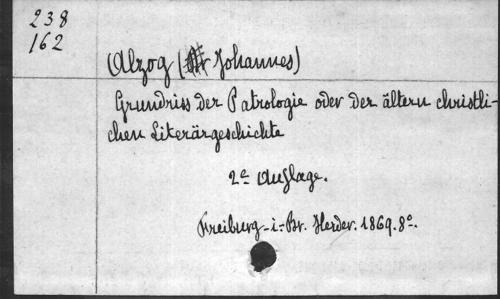 238
162
Alzog (Johannes)
Grundriss der Patrologie oder der ältern christli-
chen Literärgeschichte
2e Auflage.
Freiburg-i-Br. Herder. 1869. 8°.